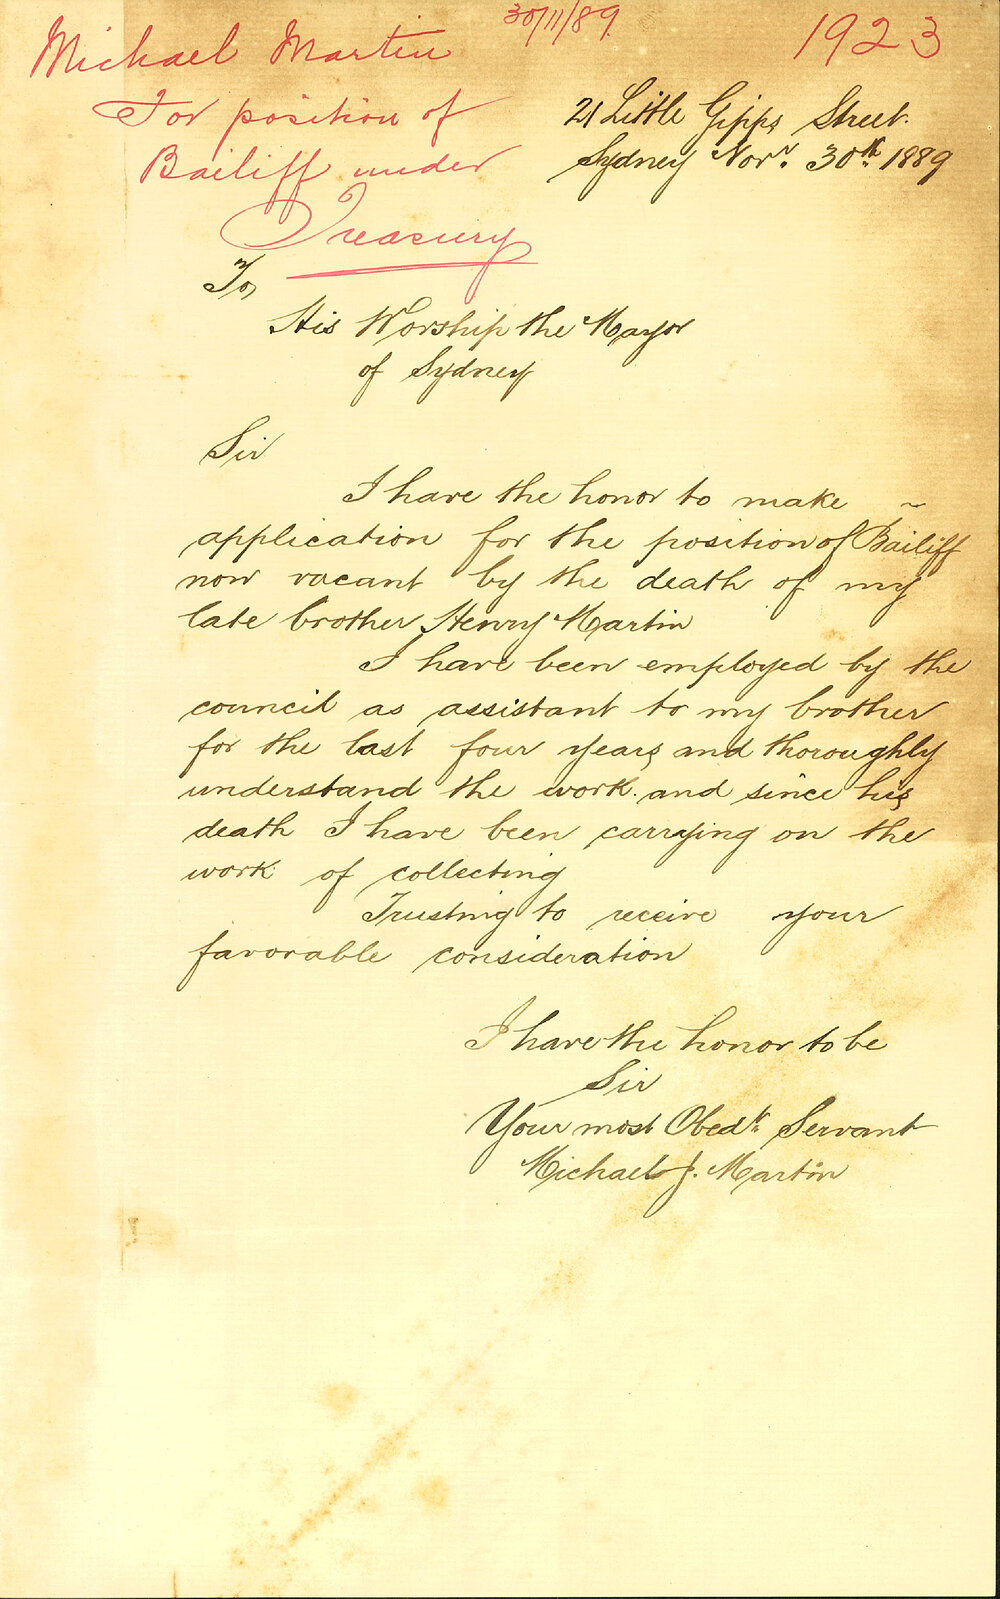 30/11/89
1923
Michael Martin
For position of
Bailiff under
Treasury
21 Little Gipps Street.
Sydney Novr. 30th 1889
To,
His Worship the Mayor
of Sydney
Sir
I have the honor to make
application for the position of Bailiff
now vacant by the death of my
late brother Henry Martin
I have been employed by the
council as assistant to my brother
for the last four years and thoroughly
understand the work. and since his
death I have been carrying on the
work of collecting
Trusting to receive your
favorable consideration
I have the honor to be
Sir
Your most Obedt. Servant
Michael J. Martin